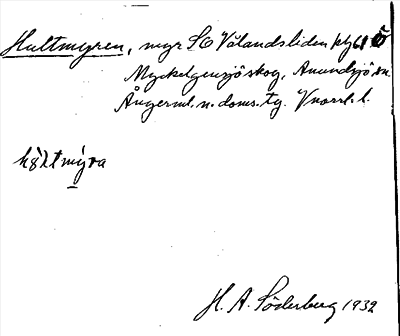 Hultmyren, myr SÖ Välandsliden
Myckelgensjö skog, Anundsjö sn.
Ångerml. n. doms. tg. Vnorrl. l.
H. A. Söderberg 1932